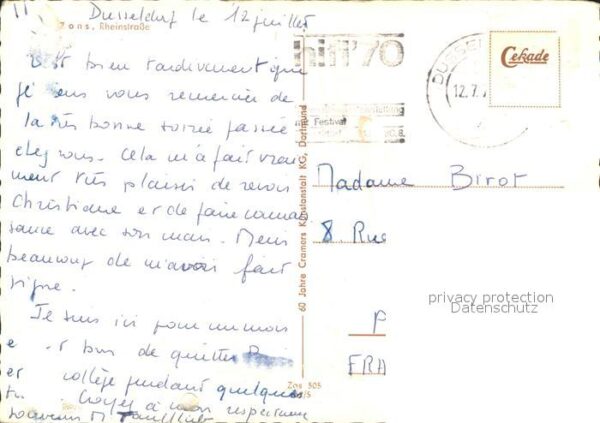 Dusseldorf le 12 juillet
Zons, Rheinstraße
C'est bien tardivement que
je viens vous remercier de
la très bonne soirée passée
chez vous. Cela m'a fait vrai
ment très plaisir de revoir
Christiane et de faire connais
sance avec son mari. Merci
beaucoup de m'avoir fait
signe.
Je suis ici pour un mois
bas de quitter
et collège pendant quelques
Croyez à mon respectueux
souvenir M
60 Jahre Cramers Kunstanstalt KG, Dortmund
Zos 505
hifi '70
Festival
12.7.
Cekade
Madame Birot
8 Rue
P
FRA
privacy protection
Datenschutz